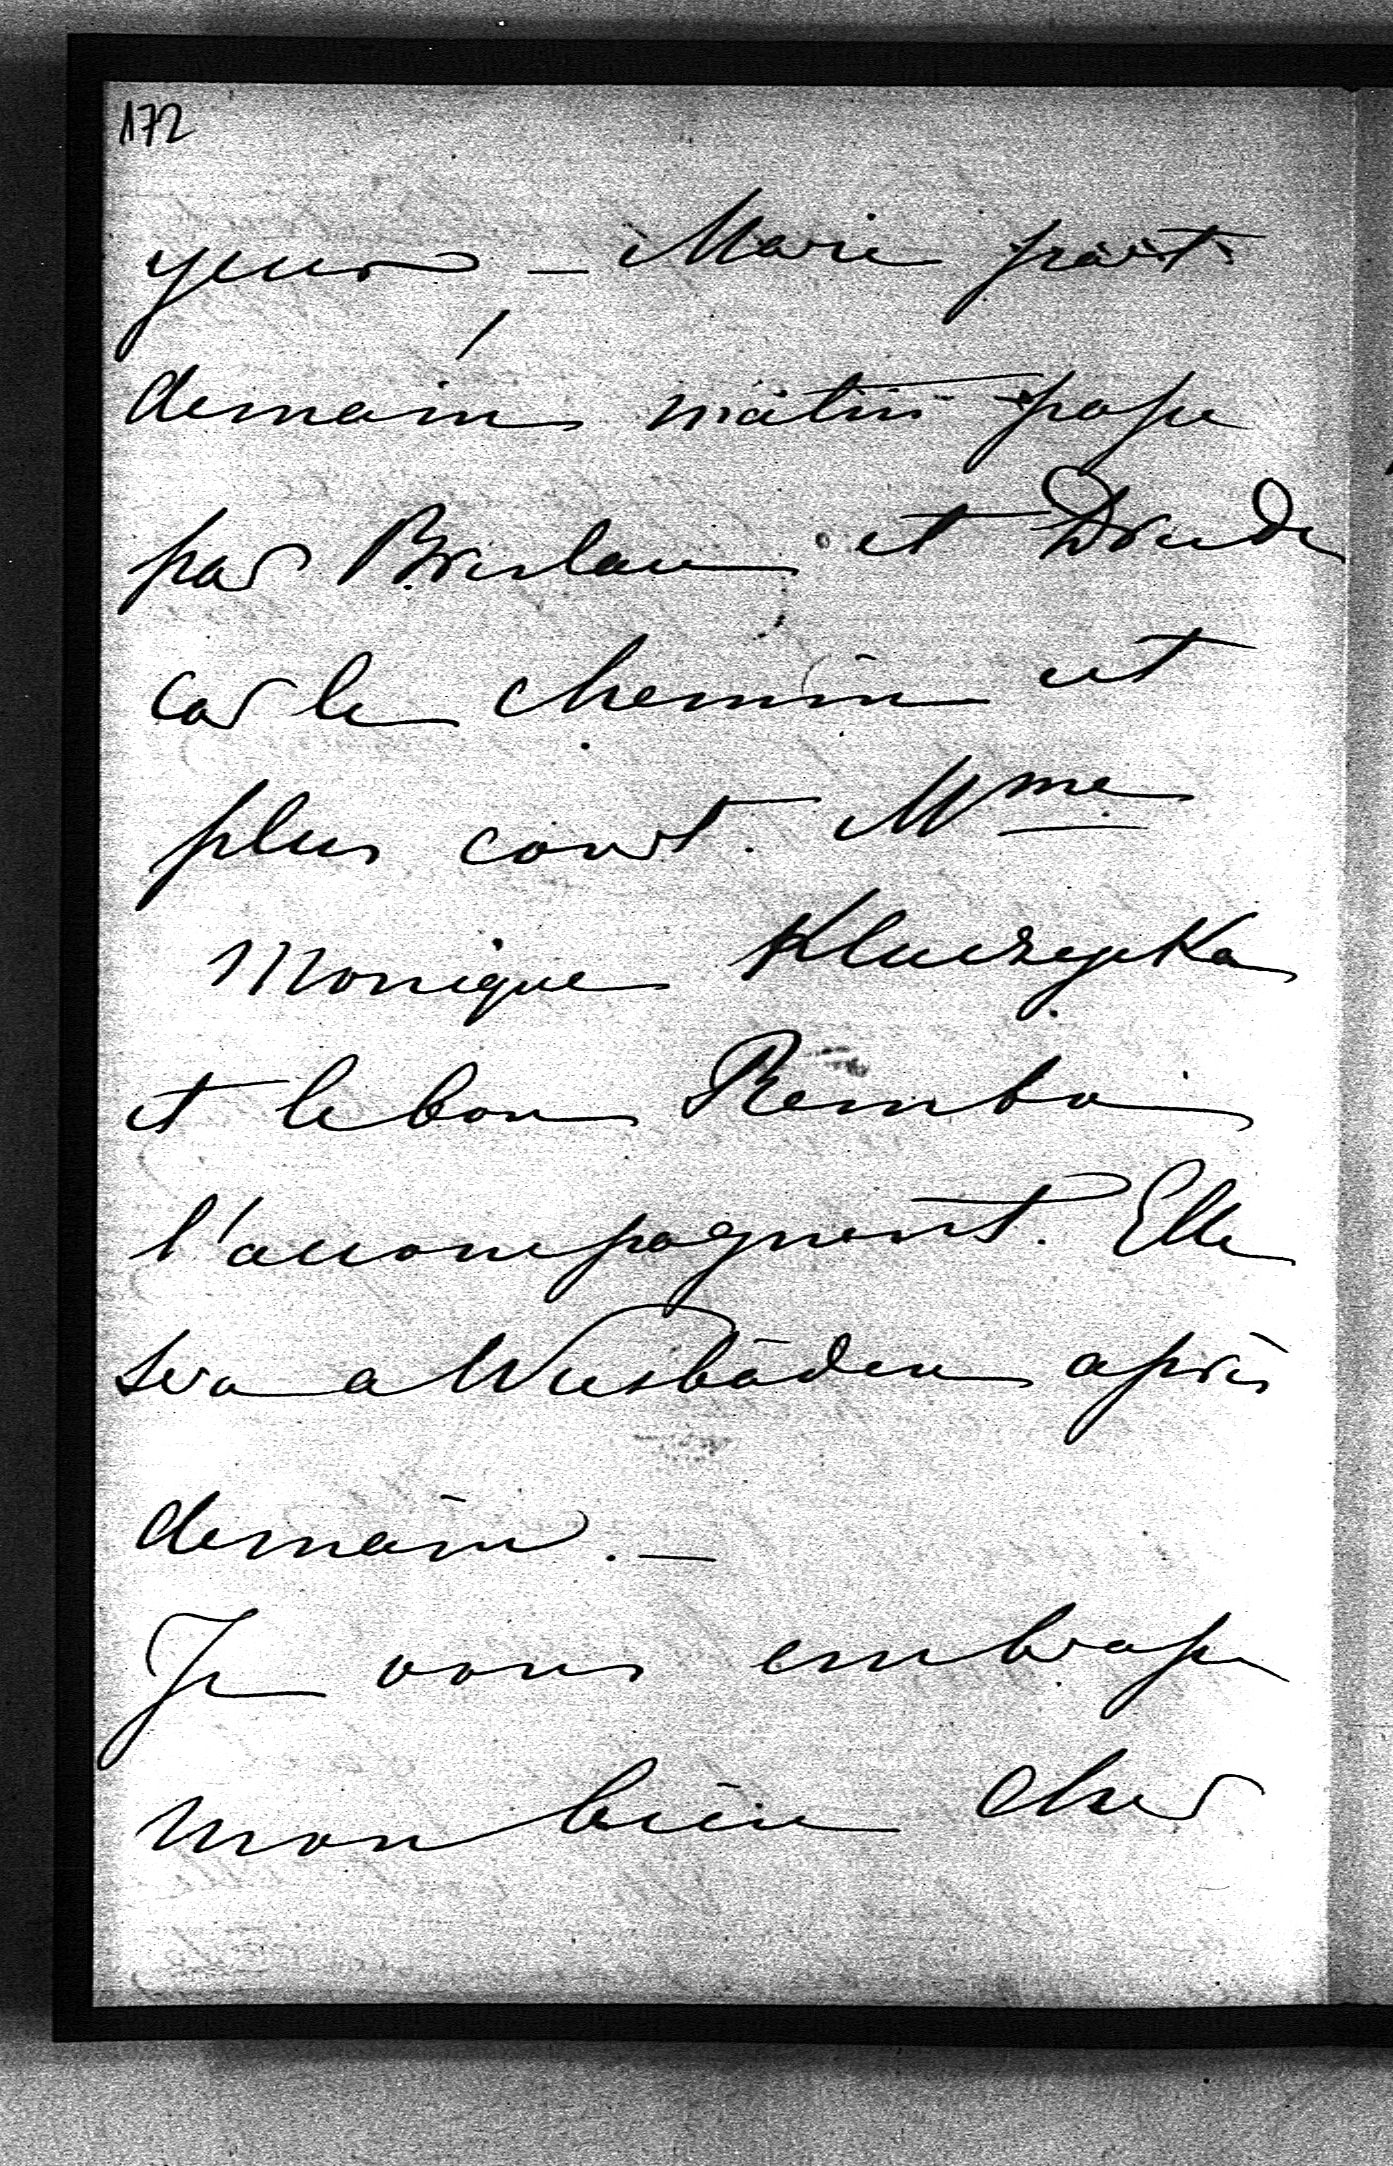 172
yeux – Marie part
demain matin passe
par Breslau et Dresde
car le chemin est
plus court. Mme
Monique Kluczycka
et le bon Rembo
l'accompagnent. Elle
sera a Wiesbaden après
demain. –
Je vous embrasse
mon bien cher